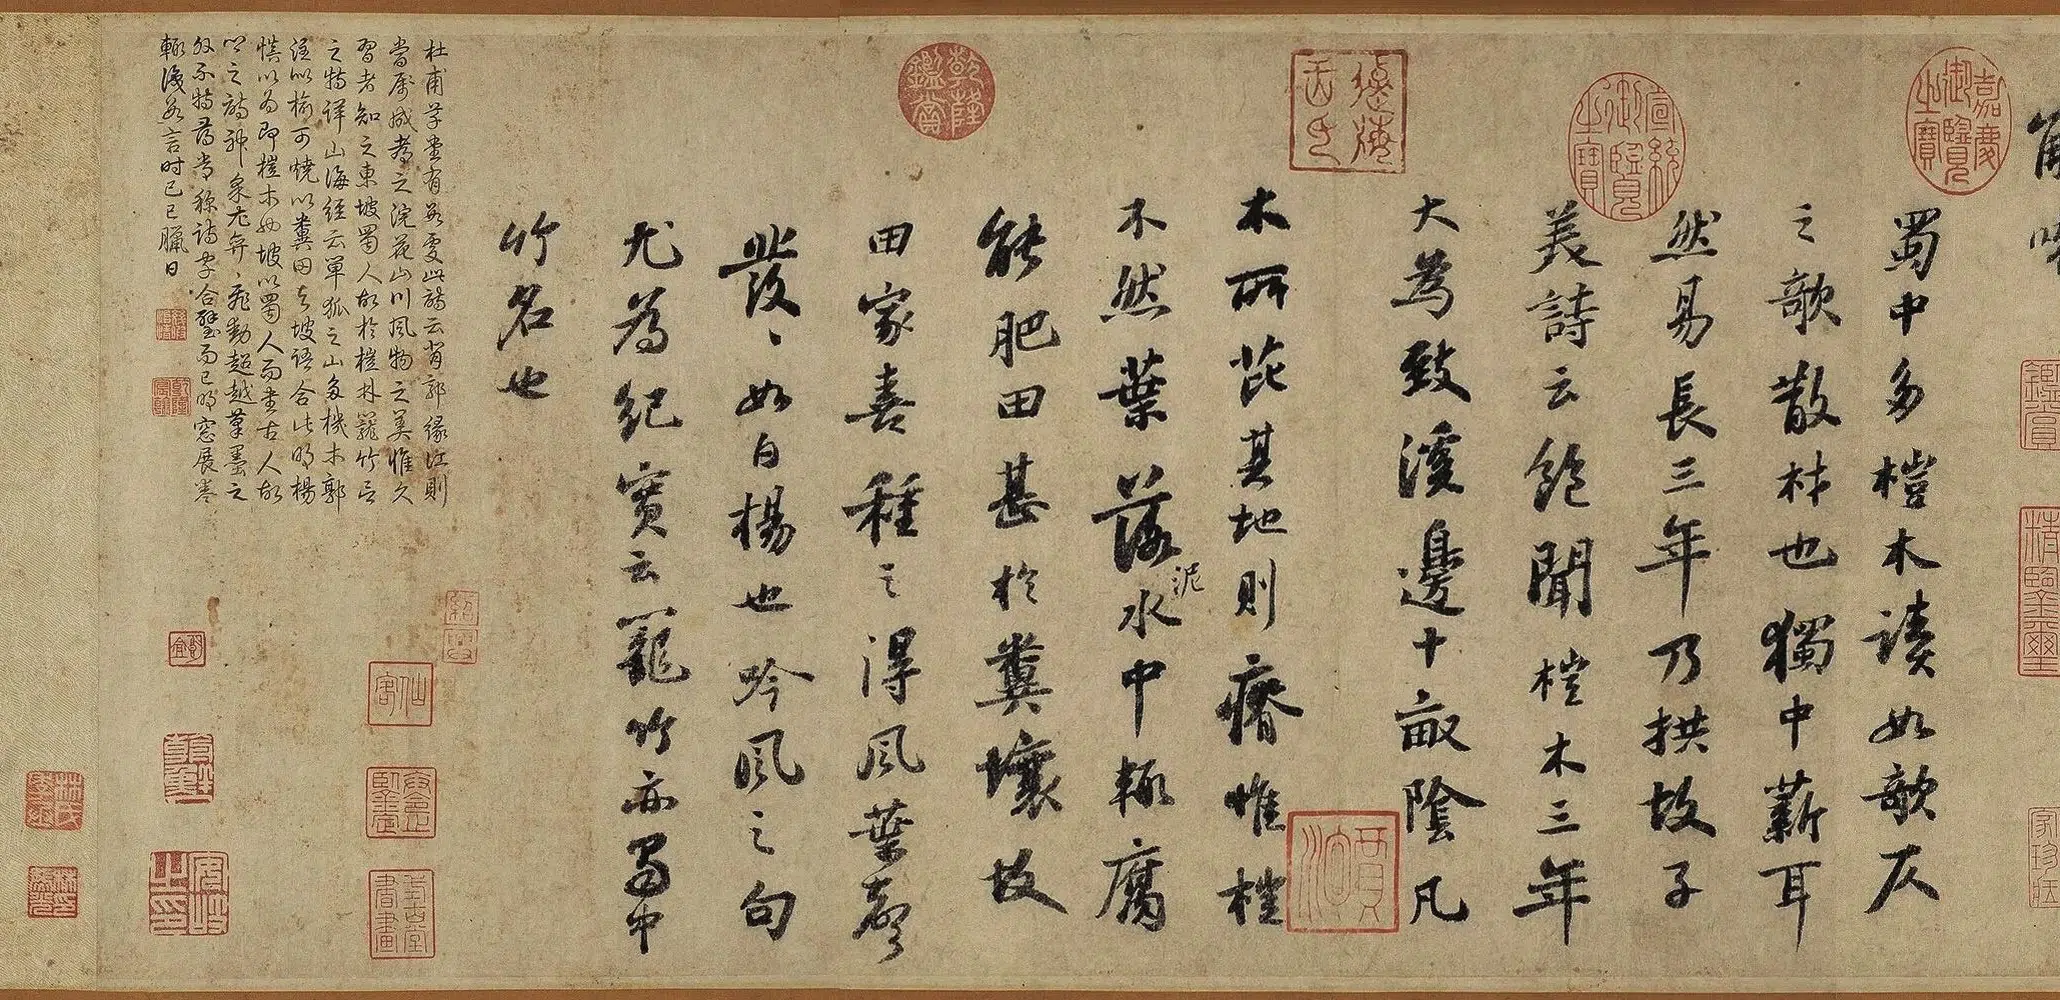 嘉慶御覽之寶
蜀中多榿木讀如欹仄
之欹散材也獨中薪耳
然易長三年乃拱故子
宣統御覽之寶
美詩云飽聞榿木三年
大為致溪邊十畝陰凡
木所芘其地則瘠惟榿
不然葉落泥水中輒腐
能肥田甚於糞壤故
乾隆鑑賞
田家喜種之得風葉聲
發〻如白楊也吟風之句
尤為紀實云籠竹亦蜀中
竹名也
杜甫草堂有數處此詩云背郭緣江則
當屬成都之浣花山川風物之美惟久
習者知之東坡蜀人故於榿林籠竹言
之特詳山海經云單狐之山多機木郭
注以榆可燒以糞田與坡語合此明楊
慎以為即榿木也坡以蜀人而書古人故
之詩神采飛動超越筆墨之
外不特稱詩字合璧而已明窗展卷
輒識數言時己巳臘日